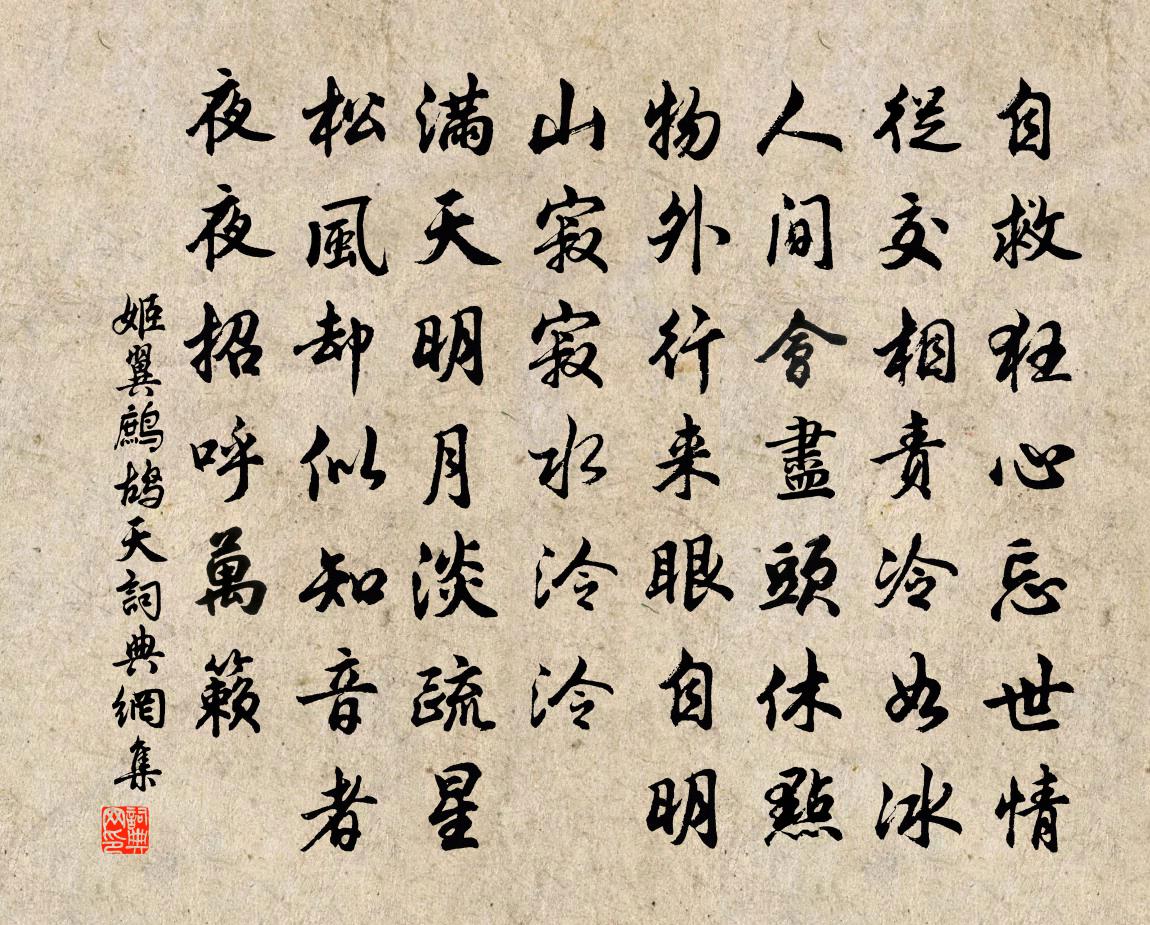 自救狂心忘世情
從交相責冷如冰
人間會盡頭休點
物外行来眼自明
山寂寂水泠泠
滿天明月淡疏星
松風却似知音者
夜夜招呼萬籟
姬翼鷓鴣天詞典網集
詞典网印